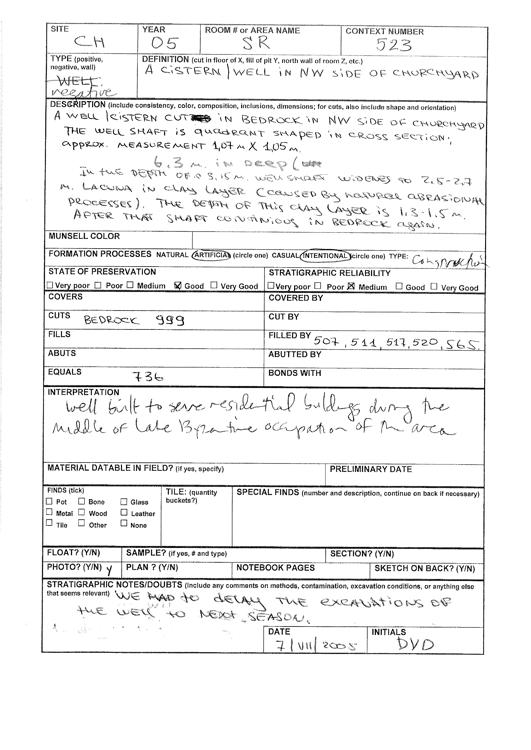 SITE
CH
YEAR
05
ROOM # or AREA NAME
SR
CONTEXT NUMBER
523
TYPE (positive, negative, wall)
WELL
negative
DEFINITION (cut in floor of X, fill of pit Y, north wall of room Z, etc.)
A CISTERN / WELL IN NW SIDE OF CHURCHYARD
DESCRIPTION (include consistency, color, composition, inclusions, dimensions; for cuts, also include shape and orientation)
A WELL / CISTERN CUT IN BEDROCK IN NW SIDE OF CHURCHYARD
THE WELL SHAFT IS QUADRANT SHAPED IN CROSS SECTION,
APPROX. MEASUREMENT 1,07 M X 1,05 M.
6,3 M. IN DEEP
IN THE DEPTH OF 3,15 M. WELL SHAFT WIDENES TO 2,5-2,7
M. LACUNA IN CLAY LAYER (CAUSED BY NATUREL ABRASIONAL
PROCESSES). THE DEPTH OF THIS CLAY LAYER IS 1.3-1.5 M.
AFTER THAT SHAFT CONTINIOUS IN BEDROCK AGAIN.
MUNSELL COLOR
FORMATION PROCESSES NATURAL ARTIFICIAL (circle one) CASUAL INTENTIONAL (circle one) TYPE: Construction
STATE OF PRESERVATION
Very poor Poor Medium Good Very Good
STRATIGRAPHIC RELIABILITY
Very poor Poor Medium Good Very Good
COVERS
COVERED BY
CUTS BEDROCK 999
CUT BY
FILLS
FILLED BY 507, 511, 517, 520, 565
ABUTS
ABUTTED BY
EQUALS 736
BONDS WITH
INTERPRETATION
Well built to serve residential buildings during the
middle of Late Byzantine occupation of the area
MATERIAL DATABLE IN FIELD? (if yes, specify)
PRELIMINARY DATE
FINDS (tick)
Pot Bone Glass
Metal Wood Leather
Tile Other None
TILE: (quantity buckets?)
SPECIAL FINDS (number and description, continue on back if necessary)
FLOAT? (Y/N)
SAMPLE? (if yes, # and type)
SECTION? (Y/N)
PHOTO? (Y/N) Y
PLAN ? (Y/N)
NOTEBOOK PAGES
SKETCH ON BACK? (Y/N)
STRATIGRAPHIC NOTES/DOUBTS (Include any comments on methods, contamination, excavation conditions, or anything else
that seems relevant) WE HAD TO DELAY THE EXCAVATIONS OF
THE WELL TO NEXT SEASON.
DATE
7/VII/2005
INITIALS
DVD